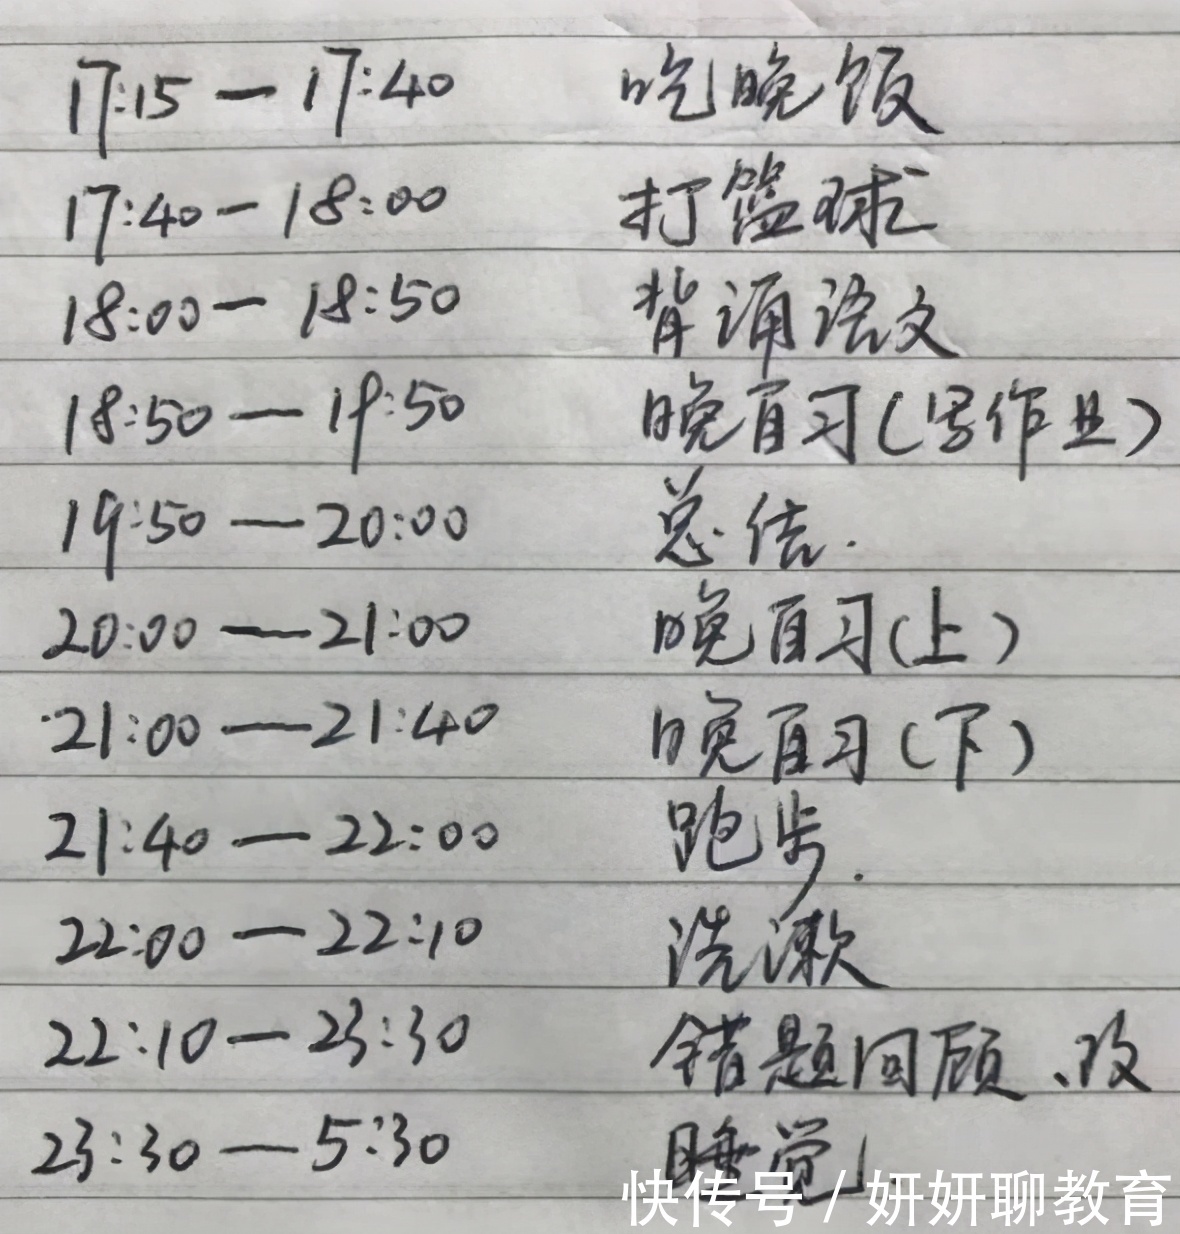 17:15 — 17:40 吃晚饭
17:40 — 18:00 打篮球
18:00 — 18:50 背诵语文
18:50 — 19:50 晚自习(写作业)
19:50 — 20:00 总结.
20:00 — 21:00 晚自习(上)
21:00 — 21:40 晚自习(下)
21:40 — 22:00 跑步.
22:00 — 22:10 洗漱
22:10 — 23:30 错题回顾、改
23:30 — 5:30 睡觉
快传号 / 妍妍聊教育